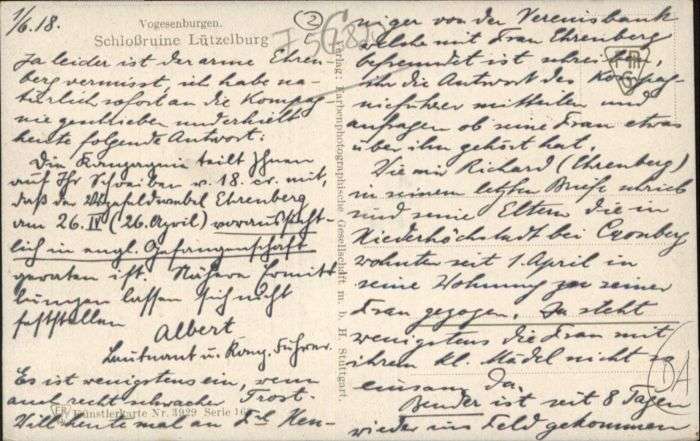 1/6.18.
Vogesenburgen.
Schloßruine Lützelburg
②
Ja leider ist der arme Ehren-
berg vermisst, ich habe na-
türlich sofort an die Kompag-
nie geschrieben und erhielt
heute folgende Antwort:
Die Kompagnie teilt Ihnen
auf Ihr Schreiben v. 18. cr. mit,
daß der Vizefeldwebel Ehrenberg
am 26. IV (26. April) voraussicht-
lich in engl. Gefangenschaft
geraten ist. Nähere Ermitt-
lungen lassen sich nicht
feststellen
Albert
Leutnant u. Komp. Führer.
Es ist wenigstens ein, wenn
auch recht schwacher Trost.
Will heute mal an Frl. Hen-
Künstlerkarte Nr. 3929 Serie
Verlag: Farbenphotographische Gesellschaft m. b. H. Stuttgart.
niger von der Vereinsbank
welche mit Frau Ehrenberg
befreundet ist schreiben,
ihr die Antwort des Kompag-
nieführer mitteilen und
anfragen ob seine Frau etwas
über ihn gehört hat.
Wie mir Richard (Ehrenberg)
in seinem letzten Briefe schrieb
sind seine Eltern die in
Niederhöchstadt bei Cronberg
wohnten seit 1 April in
seine Wohnung zu seiner
Frau gezogen. Da steht
wenigstens die Frau mit
ihrem kl. Mädel nicht so
einsam da.
Bender ist seit 8 Tagen
wieder ins Feld gekommen